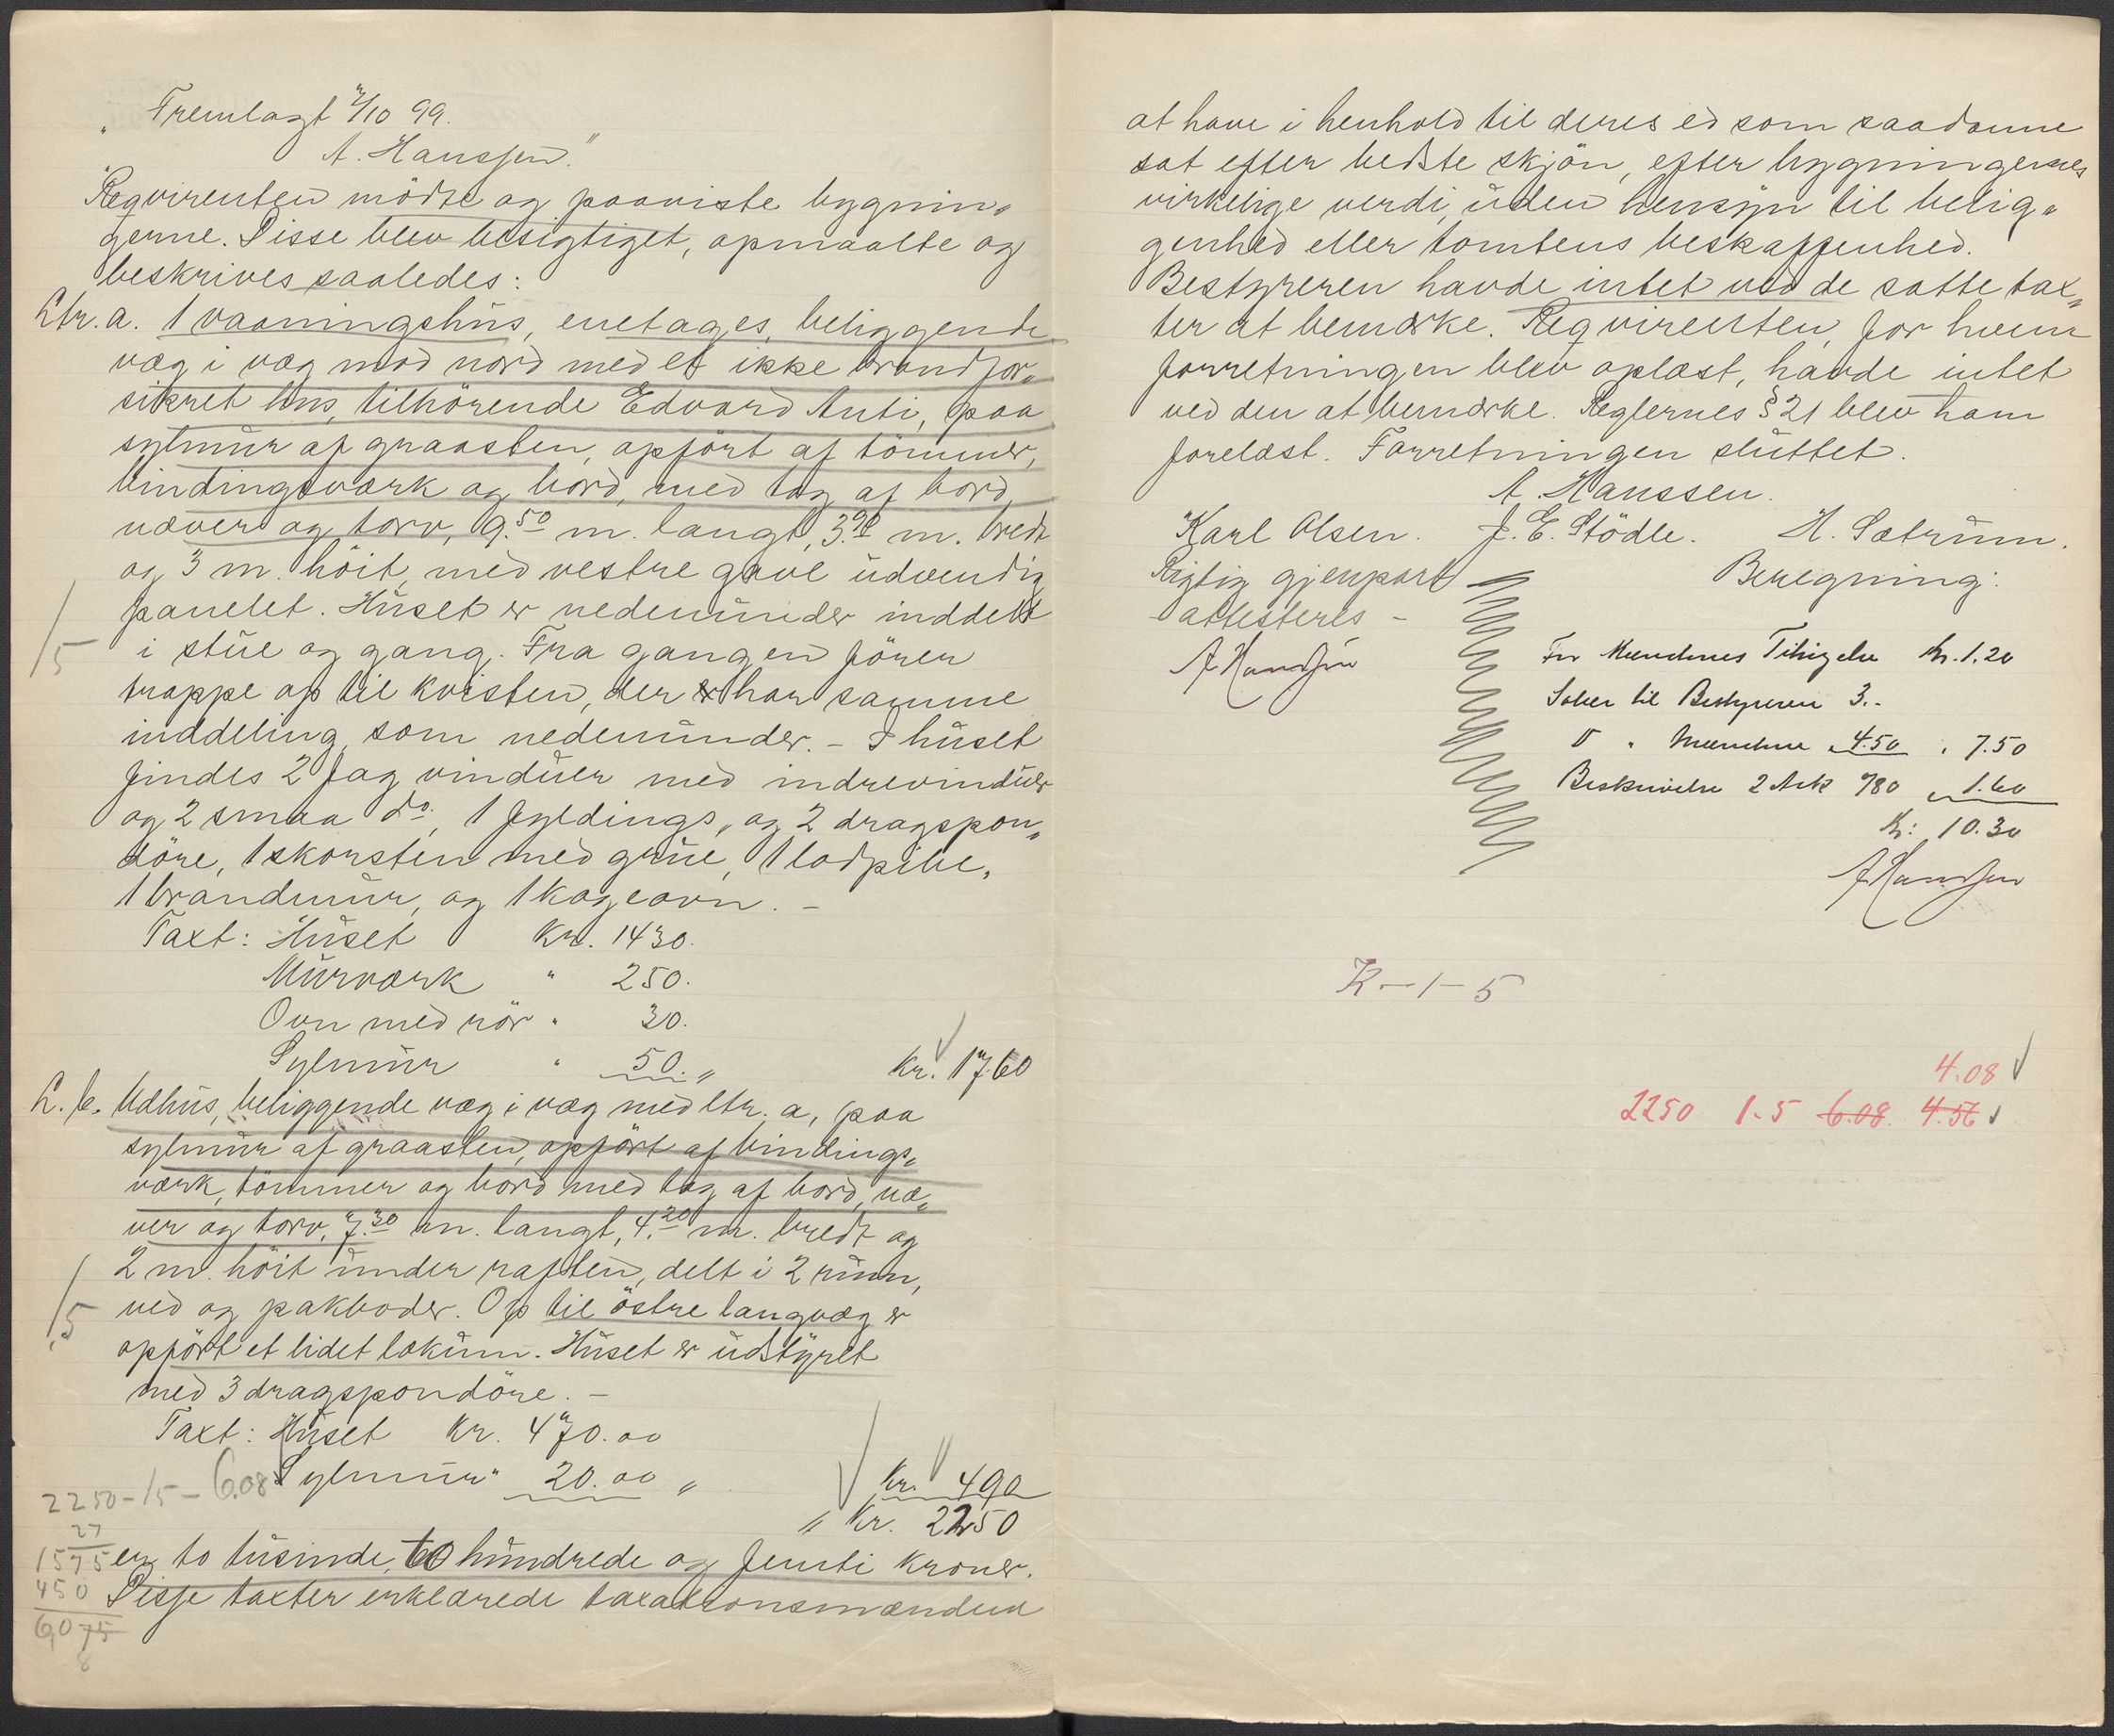 „Fremlagt 2/10 99.
A. Hanssen."
Reqvirenten mödte og paaviste bygnin„
gerne. Disse blev besigtiget, opmaalte og
beskrives saaledes:
Ltr. a. 1 vaaningshus, enetages, beliggende
væg i væg mod nord med et ikke brandfor„
sikret hus, tilhörende Edvard Anti, paa
sylmur af graasten, opfört af tömmer,
bindingsværk og bord, med tag af bord,
næver og torv, 9.50 m. langt, 3.90 m. bredt
og 3 m. höit, med vestre gavl udvendig
panelet. Huset er nedenunder inddelt
/5 i stue og gang. Fra gangen förer
trappe op til kvisten, der har samme
inddeling, som nedenunder. - I huset
findes 2 fag vinduer med indrevinduer
og 2 smaa do, 1 fyldings„ og 2 dragspon„
döre, 1 skorsten med grue, 1 lodpibe,
1 brandmur, og 1 kogeovn. -
Taxt: Huset Kr. 1430.
Murværk " 250.
Ovn med rör " 30.
Sylmur " 50. „ Kr. 1760
L. b. Udhus, beliggende væg i væg med ltr. a, paa
sylmur af graasten, opfört af bindings„
værk, tömmer og bord med tag af bord, næ„
ver og torv, 7.30 m. langt, 4.20 m. bredt og
2 m. höit under raften, delt i 2 rum,
/5 ved og pakboder. Op til östre langvæg er
opfört et lidet lokum. Huset er udstyret
med 3 dragspondöre. -
Taxt: Huset Kr. 470.00
Sylmur " 20.00 „ Kr. 490
2250-15-6.08
„ Kr. 2250
27
1575
er to tusinde, to hundrede og femti kroner.
450
Disse taxter erklærede taxationsmændene
6,075
8
at have i henhold til deres ed som saadanne
sat efter bedste skjön, efter bygningernes
virkelige verdi, uden hensyn til belig„
genhed eller tomtens beskaffenhed.
Bestyreren havde intet ved de satte tax„
ter at bemærke. Reqvirenten, for hvem
forretningen blev oplæst, havde intet
ved den at bemærke. Reglernes § 21 blev ham
forelæst. Forretningen sluttet.
A. Hanssen.
Karl Olsen. J. E. Stödle. H. Sætrum.
Rigtig gjenpart
attesteres -
A Hanssen
Beregning:
For Mændenes Tilsigelse Kr. 1.20
Salær til Bestyreren 3.-
D " Mændene 4.50 " 7.50
Beskrivelse 2 Ark /80 " 1.60
Kr: 10.30
A Hanssen
K-1-5
4.08
2250 1.5 6.08 4.56